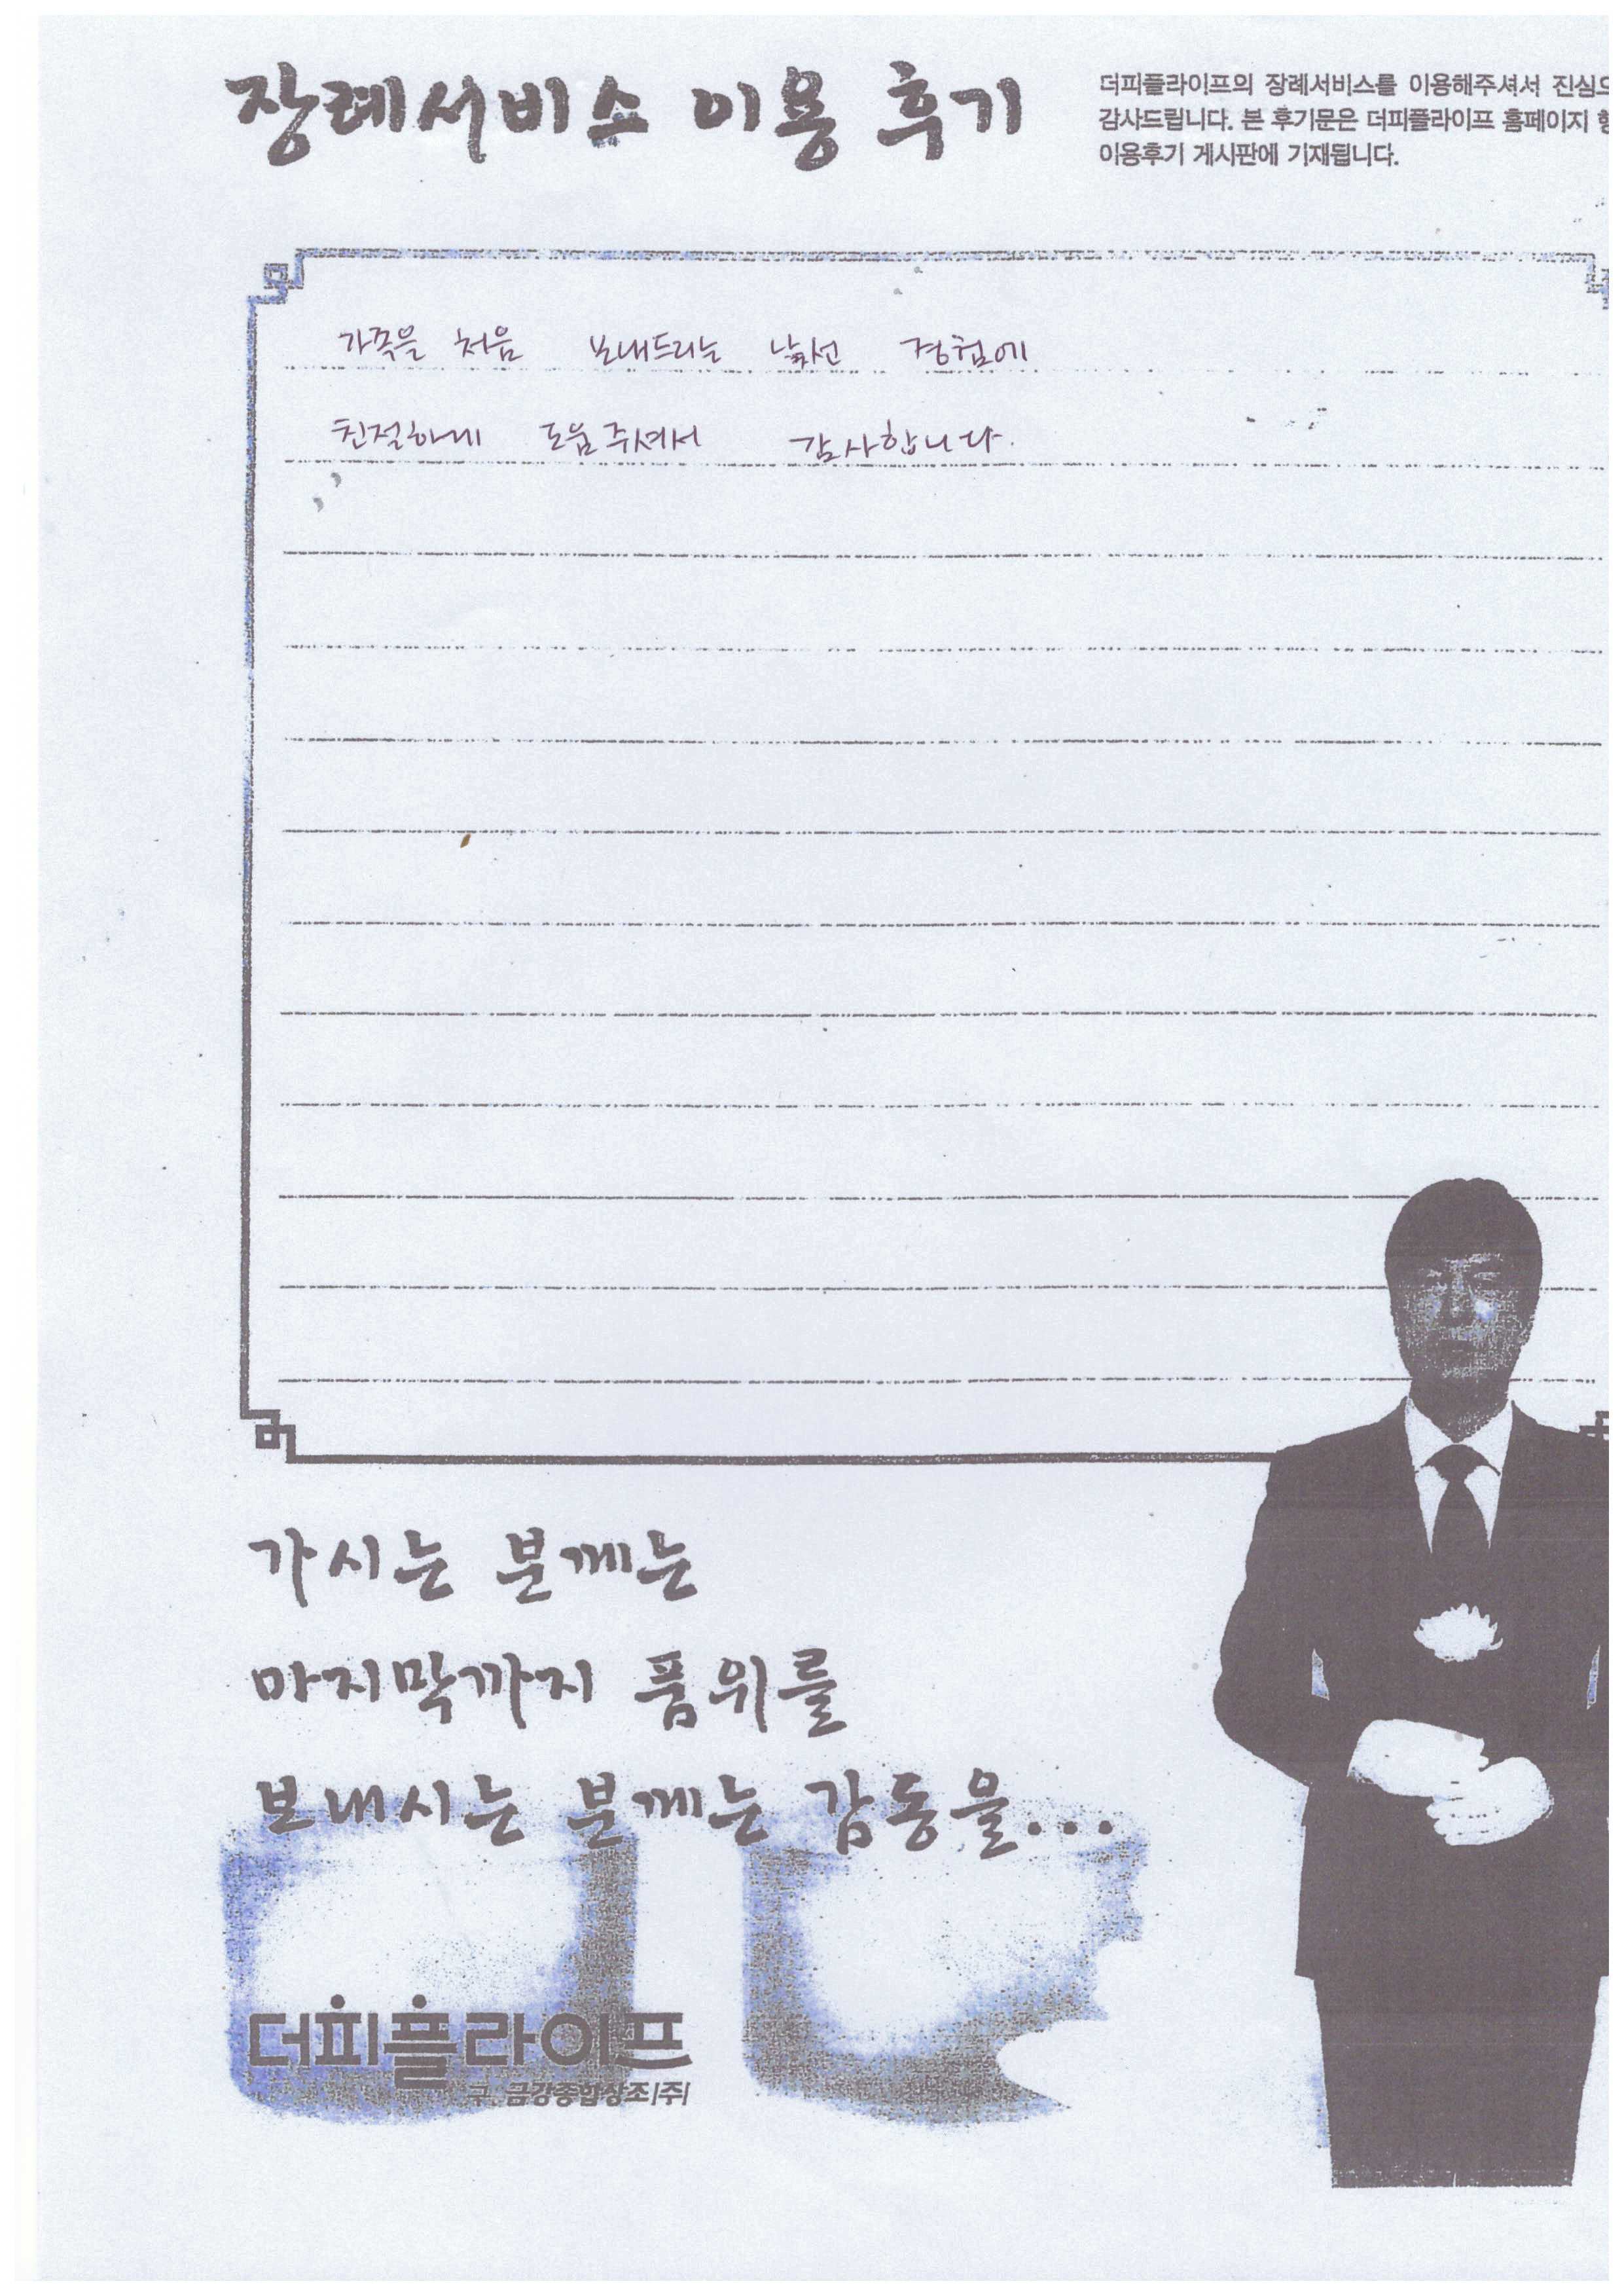 장례서비스 이용 후기
더피플라이프의 장례서비스를 이용해주셔서 진심으
감사드립니다. 본 후기문은 더피플라이프 홈페이지
이용후기 게시판에 기재됩니다.
가족을 처음 보내드리는 낯선 경험에
친절하게 도움주셔서 감사합니다.
가시는 분께는
마지막까지 품위를
보내시는 분께는 감동을...
더피플라이프
구. 금강종합상조(주)